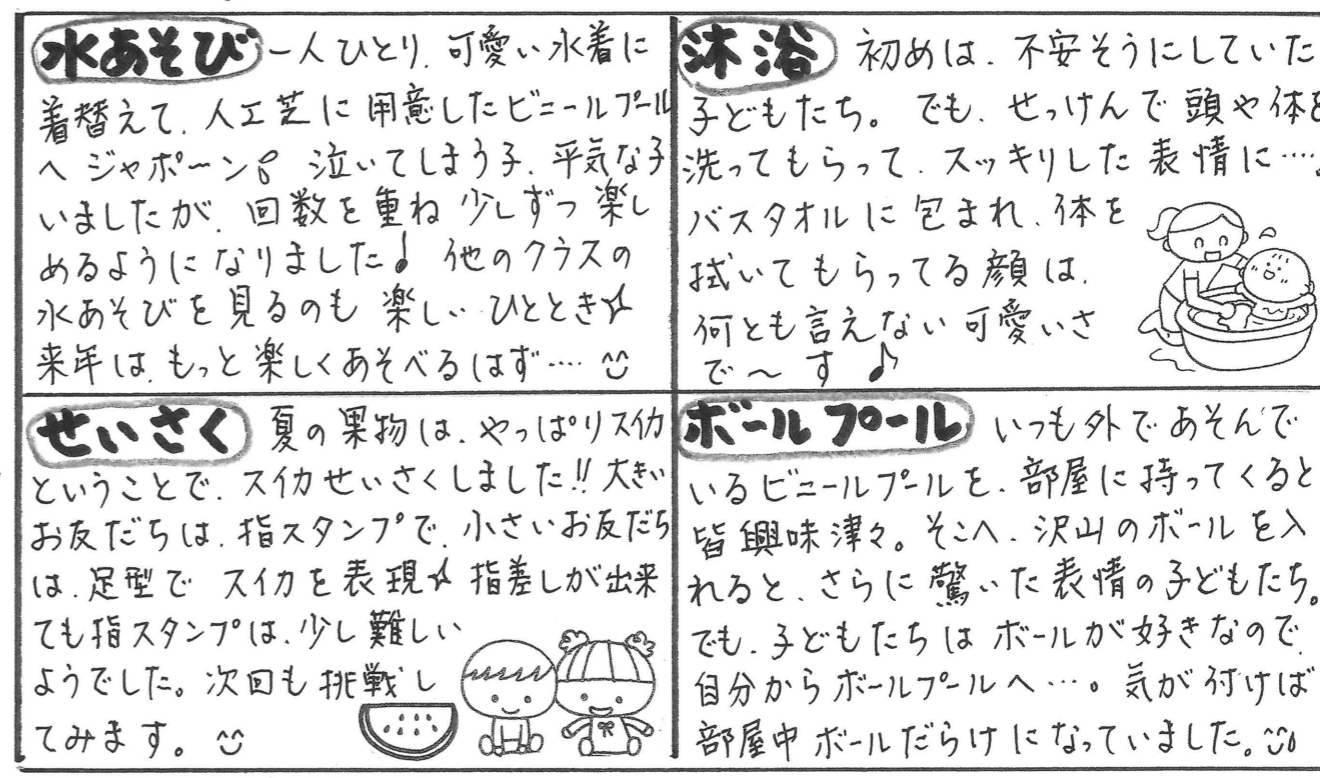 水あそび 一人ひとり、可愛い水着に
着替えて、人工芝に用意したビニールプール
へジャポーン♪ 泣いてしまう子、平気な子
いましたが、回数を重ね少しずつ楽し
めるようになりました♪ 他のクラスの
水あそびを見るのも楽しいひととき☆
来年は、もっと楽しくあそべるはず……
沐浴 初めは、不安そうにしていた
子どもたち。でも、せっけんで頭や体を
洗ってもらって、スッキリした表情に……。
バスタオルに包まれ、体を
拭いてもらってる顔は、
何とも言えない可愛いさ
で〜す♪
せいさく 夏の果物は、やっぱりスイカ
ということで、スイカせいさくしました!!大きい
お友だちは、指スタンプで、小さいお友だち
は、足型でスイカを表現☆ 指差しが出来
ても指スタンプは、少し難しい
ようでした。次回も挑戦し
てみます。
ボールプール いつも外であそんで
いるビニールプールを、部屋に持ってくると
皆興味津々。そこへ、沢山のボールを入
れると、さらに驚いた表情の子どもたち。
でも、子どもたちはボールが好きなので、
自分からボールプールへ…。気が付けば
部屋中ボールだらけになっていました。